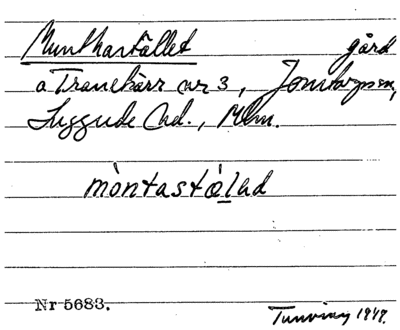 Munkastället gård
a Tranekärr nr 3, Jonstorps sn,
Luggude hd., Mlm.
mòntastǿlad
Nr 5683.
Tunving 1949.